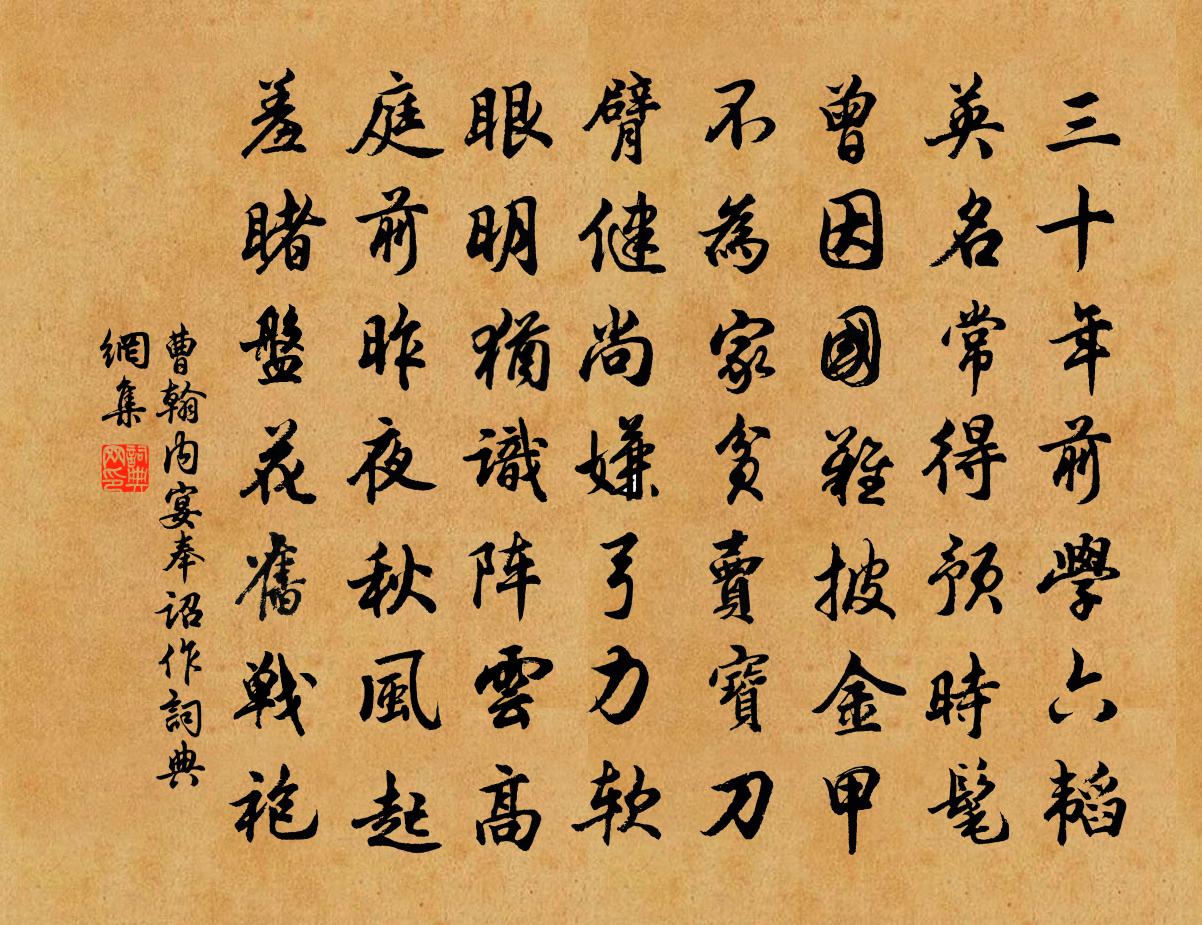 三十年前學六韬
英名常得预時髦
曾因國難披金甲
不為家貧賣寶刀
臂健尚嫌弓力软
眼明猶識阵雲高
庭前昨夜秋風起
羞睹盤花舊戰袍
曹翰内宴奉詔作詞典
網集
詞典
网印